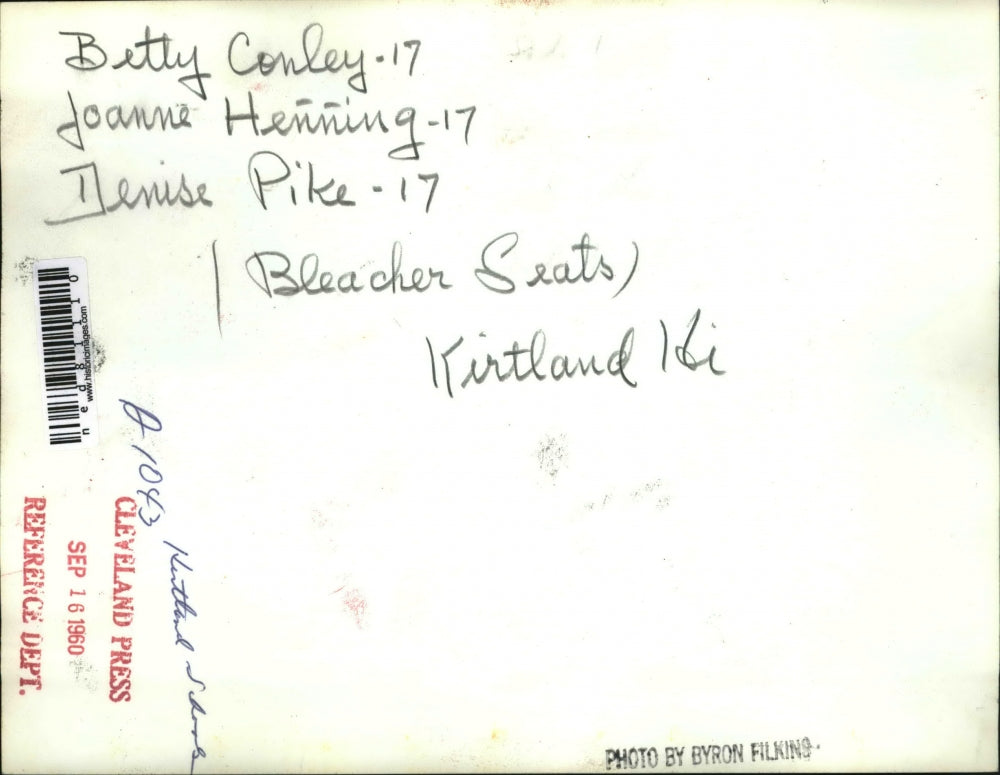 Betty Conley-17
Joanne Henning-17
Denise Pike-17
(Bleacher Seats)
Kirtland Hi
ned811110
www.historicimages.com
A 1043 Kirtland Schools
CLEVELAND PRESS
SEP 16 1960
REFERENCE DEPT.
PHOTO BY BYRON FILKINS